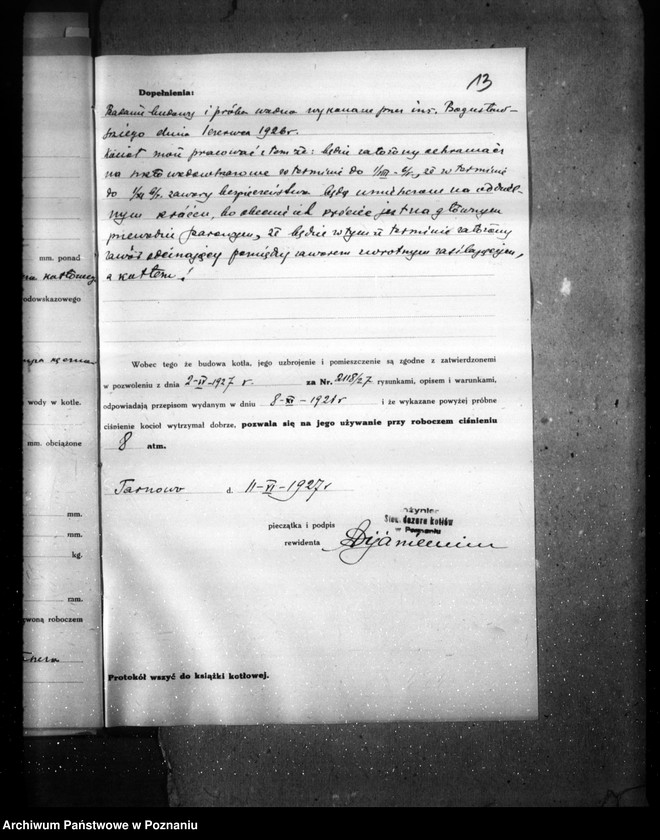 13
Dopełnienia:
Badanie budowy i próba wodna wykonane przez inż. Bogusław-
skiego dnia 1 czerwca 1926 r.
Kocioł może pracować z tem że: będzie założony
na szkło wodowskazowe w terminie do 1/VII b/r, że w terminie
do b/r. zawory bezpieczeństwa będą umieszczone na oddziel-
nym króćcu, bo obecnie ich króćce jest na głównym
przewodzie parowym, że będzie w tym terminie założony
zawór odcinający pomiędzy zaworem zwrotnym zasilającym,
a kotłem!
mm. ponad
kotłowej
odowskazowego
wody w kotle.
mm. obciążone
mm.
mm.
kg.
ram.
ewoną roboczem
Wobec tego że budowa kotła, jego uzbrojenie i pomieszczenie są zgodne z zatwierdzonemi
w pozwoleniu z dnia 2-VI-1927 r. za Nr. 2118/27 rysunkami, opisem i warunkami,
odpowiadają przepisom wydanym w dniu 8-XI-1921 r i że wykazane powyżej próbne
ciśnienie kocioł wytrzymał dobrze, pozwala się na jego używanie przy roboczem ciśnieniu
8 atm.
Tarnowo d. 11-VI-1927 r
pieczątka i podpis
rewidenta
Inżynier
Stow. dozoru kotłów
w Poznaniu
Protokół wszyć do książki kotłowej.
Archiwum Państwowe w Poznaniu